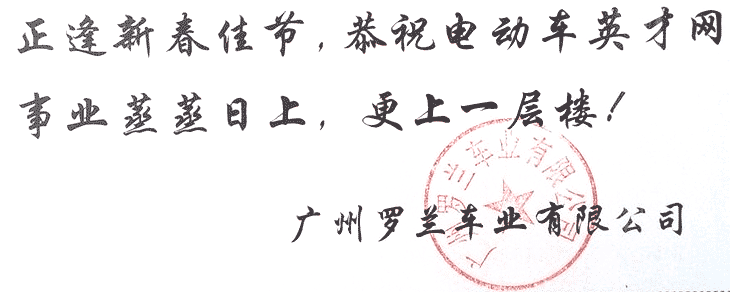 正逢新春佳节，恭祝电动车英才网
事业蒸蒸日上，更上一层楼！
广州罗兰车业有限公司
广州罗兰车业有限公司